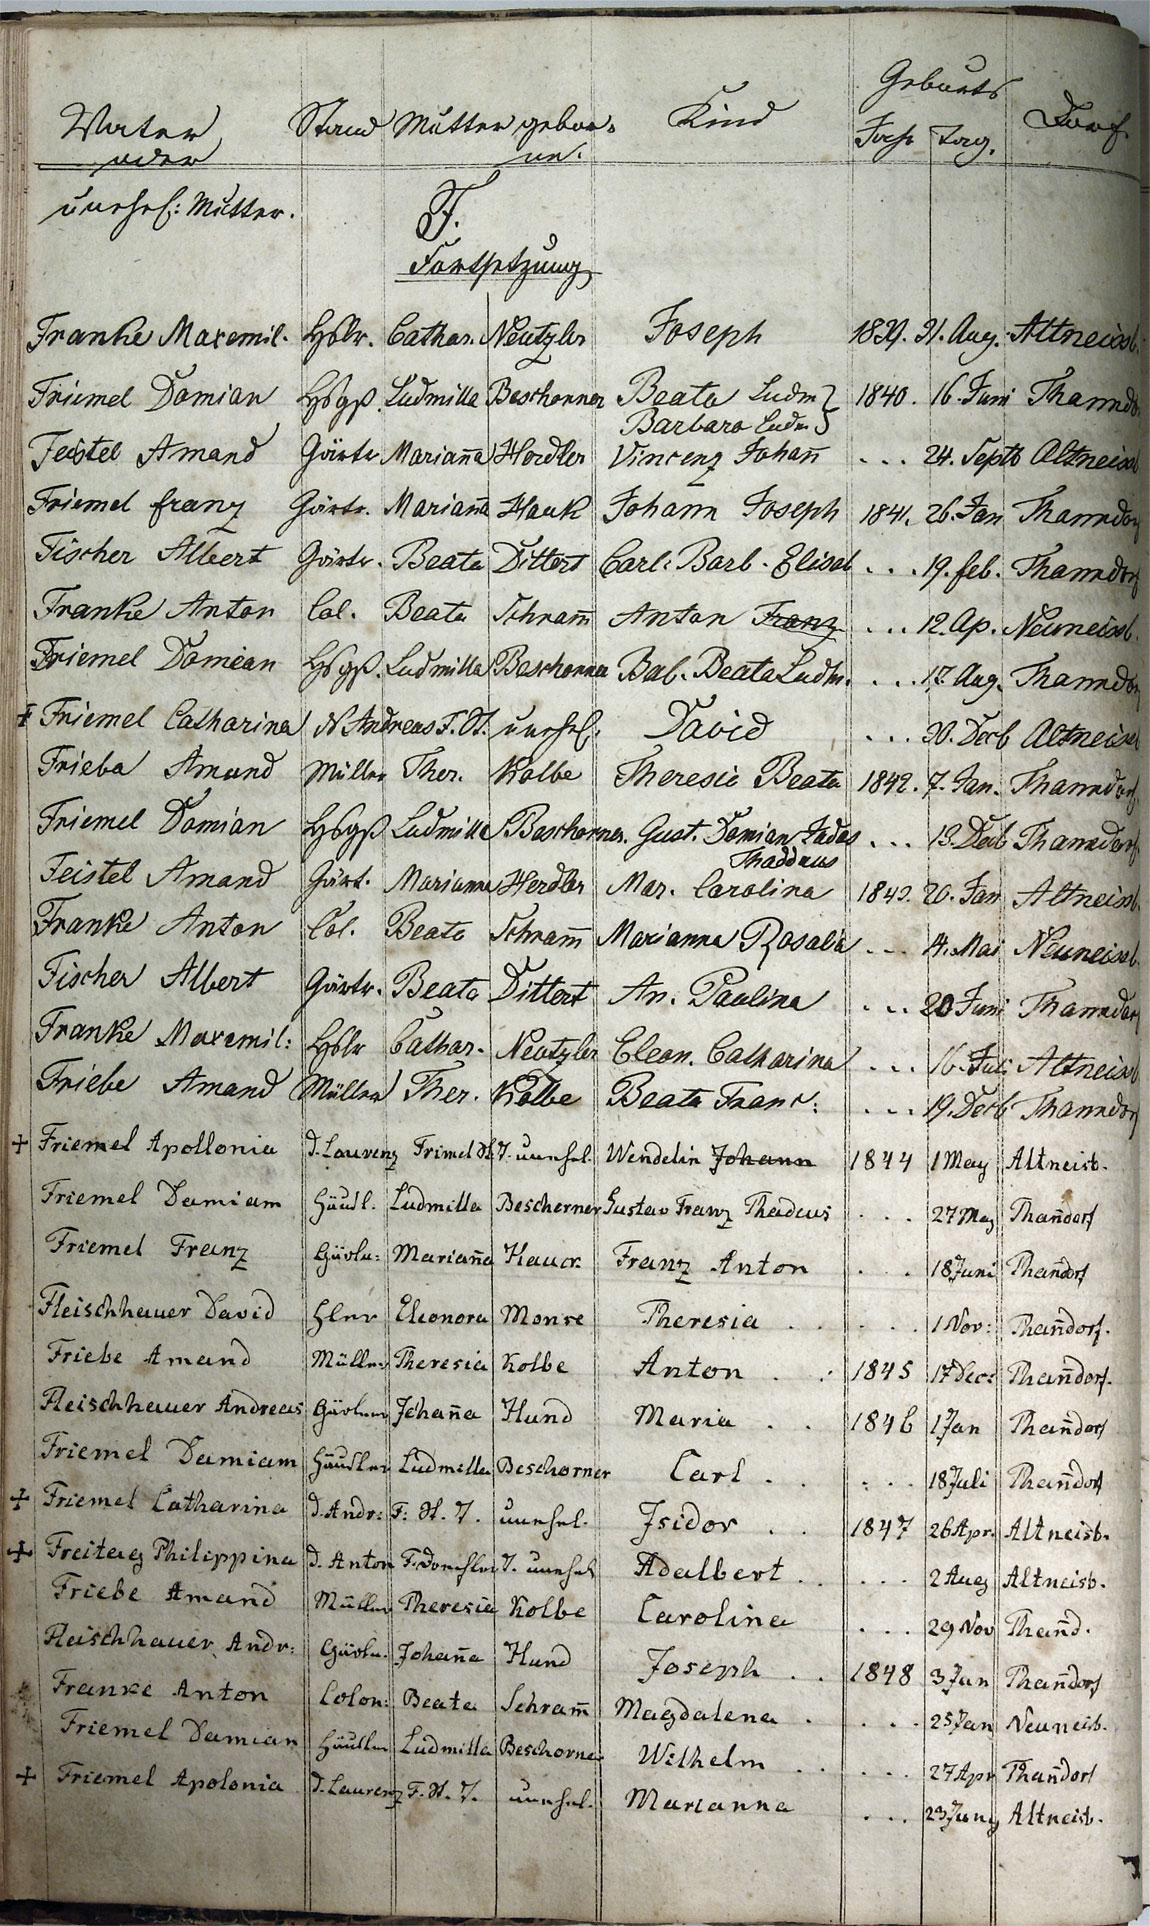 Vater Stand Mutter gebor- Kind Geburts Dorf.
oder ne. Jahr Tag.
unehel: Mutter.
F.
Fortsetzung
Franke Maxemil. Hslr. Cathar. Neutzler Joseph 1839. 31. Aug. Altneissb.
Friemel Damian Hsgß. Ludmilla Beschorner Beata Ludm 1840. 16. Juni Thanndo
Barbara Ludm
Feistel Amand Gärtr Mariana Herdler Vincenz Johan ... 24. Septb Altneiss
Friemel Franz Gärtr. Mariana Hauk Johann Joseph 1841. 26. Jan Thanndo
Fischer Albert Gärtr. Beata Dittert Carl: Barb. Elisab ... 19. Feb. Thanndorf
Franke Anton Col. Beata Schram Anton Franz ... 12. Ap. Neuneissb.
Friemel Damian Hsgß. Ludmilla Beschorner Bab. Beata Ludm. ... 17. Aug. Thanndo
+ Friemel Catharina N Andreas F. St. unehel. David ... 30. Decb Altneiss
Frieba Amand Müller Ther. Kolbe Theresia Beata 1842. 7. Jan. Thanndorf
Friemel Damian Hsgß Ludmilla Beschorner. Gust. Damian Judas ... 13. Decb Thanndorf
Thaddäus
Feistel Amand Gärt. Marianna Herdler Mar. Carolina 1843. 20. Jan Altneissb.
Franke Anton Col. Beata Schram Marianna Rosalia ... 14. Mai Neuneissb.
Fischer Albert Gärtr. Beata Dittert An. Paulina ... 20 Juni Thanndorf
Franke Maxemil: Hslr Cathar. Neutzler Eleon. Catharina ... 16. Juli Altneissb
Friebe Amand Müller Ther. Kolbe Beata Franc: ... 19. Decb Thanndorf
+ Friemel Apollonia d. Laurenz Frimel St. T. unehel. Wendelin Johann 1844 1 May Altneisb.
Friemel Damiam Häusl. Ludmilla Bescherner Gustav Franz Thadeus ... 27 May Thandorf
Friemel Franz Gärtn: Mariana Hauck Franz Anton ... 18 Juni Thandorf
Fleischhauer David Hler Eleonora Monse Theresia ... 1 Nov: Thandorf.
Friebe Amand Müller Theresia Kolbe Anton 1845 17 Dec: Thandorf.
Fleischhauer Andreas Gärtner Johana Hund Maria 1846 1 Jan Thandorf
Friemel Damiam Häusler Ludmilla Beschorner Carl ... 18 Juli Thandorf
+ Friemel Catharina d. Andr: F: St. T. unehel. Isidor 1847 26 Apr. Altneisb.
+ Freitag Philippina d. Anton F. T. unehel Adalbert ... 2 Aug Altneisb.
Friebe Amand Müller Theresia Kolbe Carolina ... 29 Nov Thand.
Fleischhauer Andr: Gärtn. Johana Hund Joseph 1848 3 Jan Thandorf
Franke Anton Colon: Beata Schram Magdalena ... 25 Jan Neuneisb.
Friemel Damian Häusler Ludmilla Beschorner Wilhelm ... 27 Apr Thandorf
+ Friemel Apolonia d. Laurenz F. St. T. unehel. Marianna ... 23 Juny Altneisb.